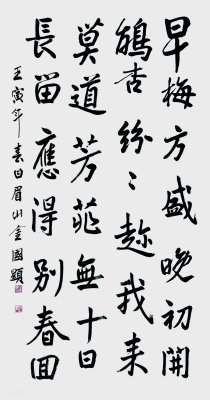 早梅方盛晚初開
鵠杏紛々趂我来
莫道芳菲無十日
長畱應得別春回
壬寅年春日眉山金國顯